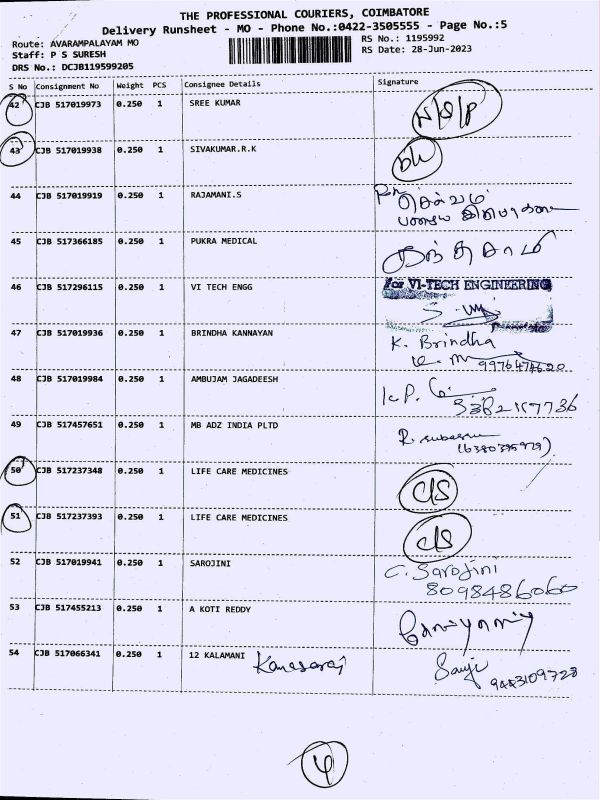 THE PROFESSIONAL COURIERS, COIMBATORE
Delivery Runsheet - MO - Phone No.:0422-3505555 - Page No.:5
Route: AVARAMPALAYAM MO
RS No.: 1195992
Staff: P S SURESH
RS Date: 28-Jun-2023
DRS No.: DCJB119599205
S No Consignment No Weight PCS Consignee Details Signature
42 CJB 517019973 0.250 1 SREE KUMAR
43 CJB 517019938 0.250 1 SIVAKUMAR.R.K
44 CJB 517019919 0.250 1 RAJAMANI.S
45 CJB 517366185 0.250 1 PUKRA MEDICAL
46 CJB 517296115 0.250 1 VI TECH ENGG for VI-TECH ENGINEERING
47 CJB 517019936 0.250 1 BRINDHA KANNAYAN K. Brindha
48 CJB 517019984 0.250 1 AMBUJAM JAGADEESH
49 CJB 517457651 0.250 1 MB ADZ INDIA PLTD
50 CJB 517237348 0.250 1 LIFE CARE MEDICINES C/S
51 CJB 517237393 0.250 1 LIFE CARE MEDICINES C/S
52 CJB 517019941 0.250 1 SAROJINI C. Sarojini
8098486060
53 CJB 517455213 0.250 1 A KOTI REDDY
54 CJB 517066341 0.250 1 12 KALAMANI Kanagaraj
9443109728
4